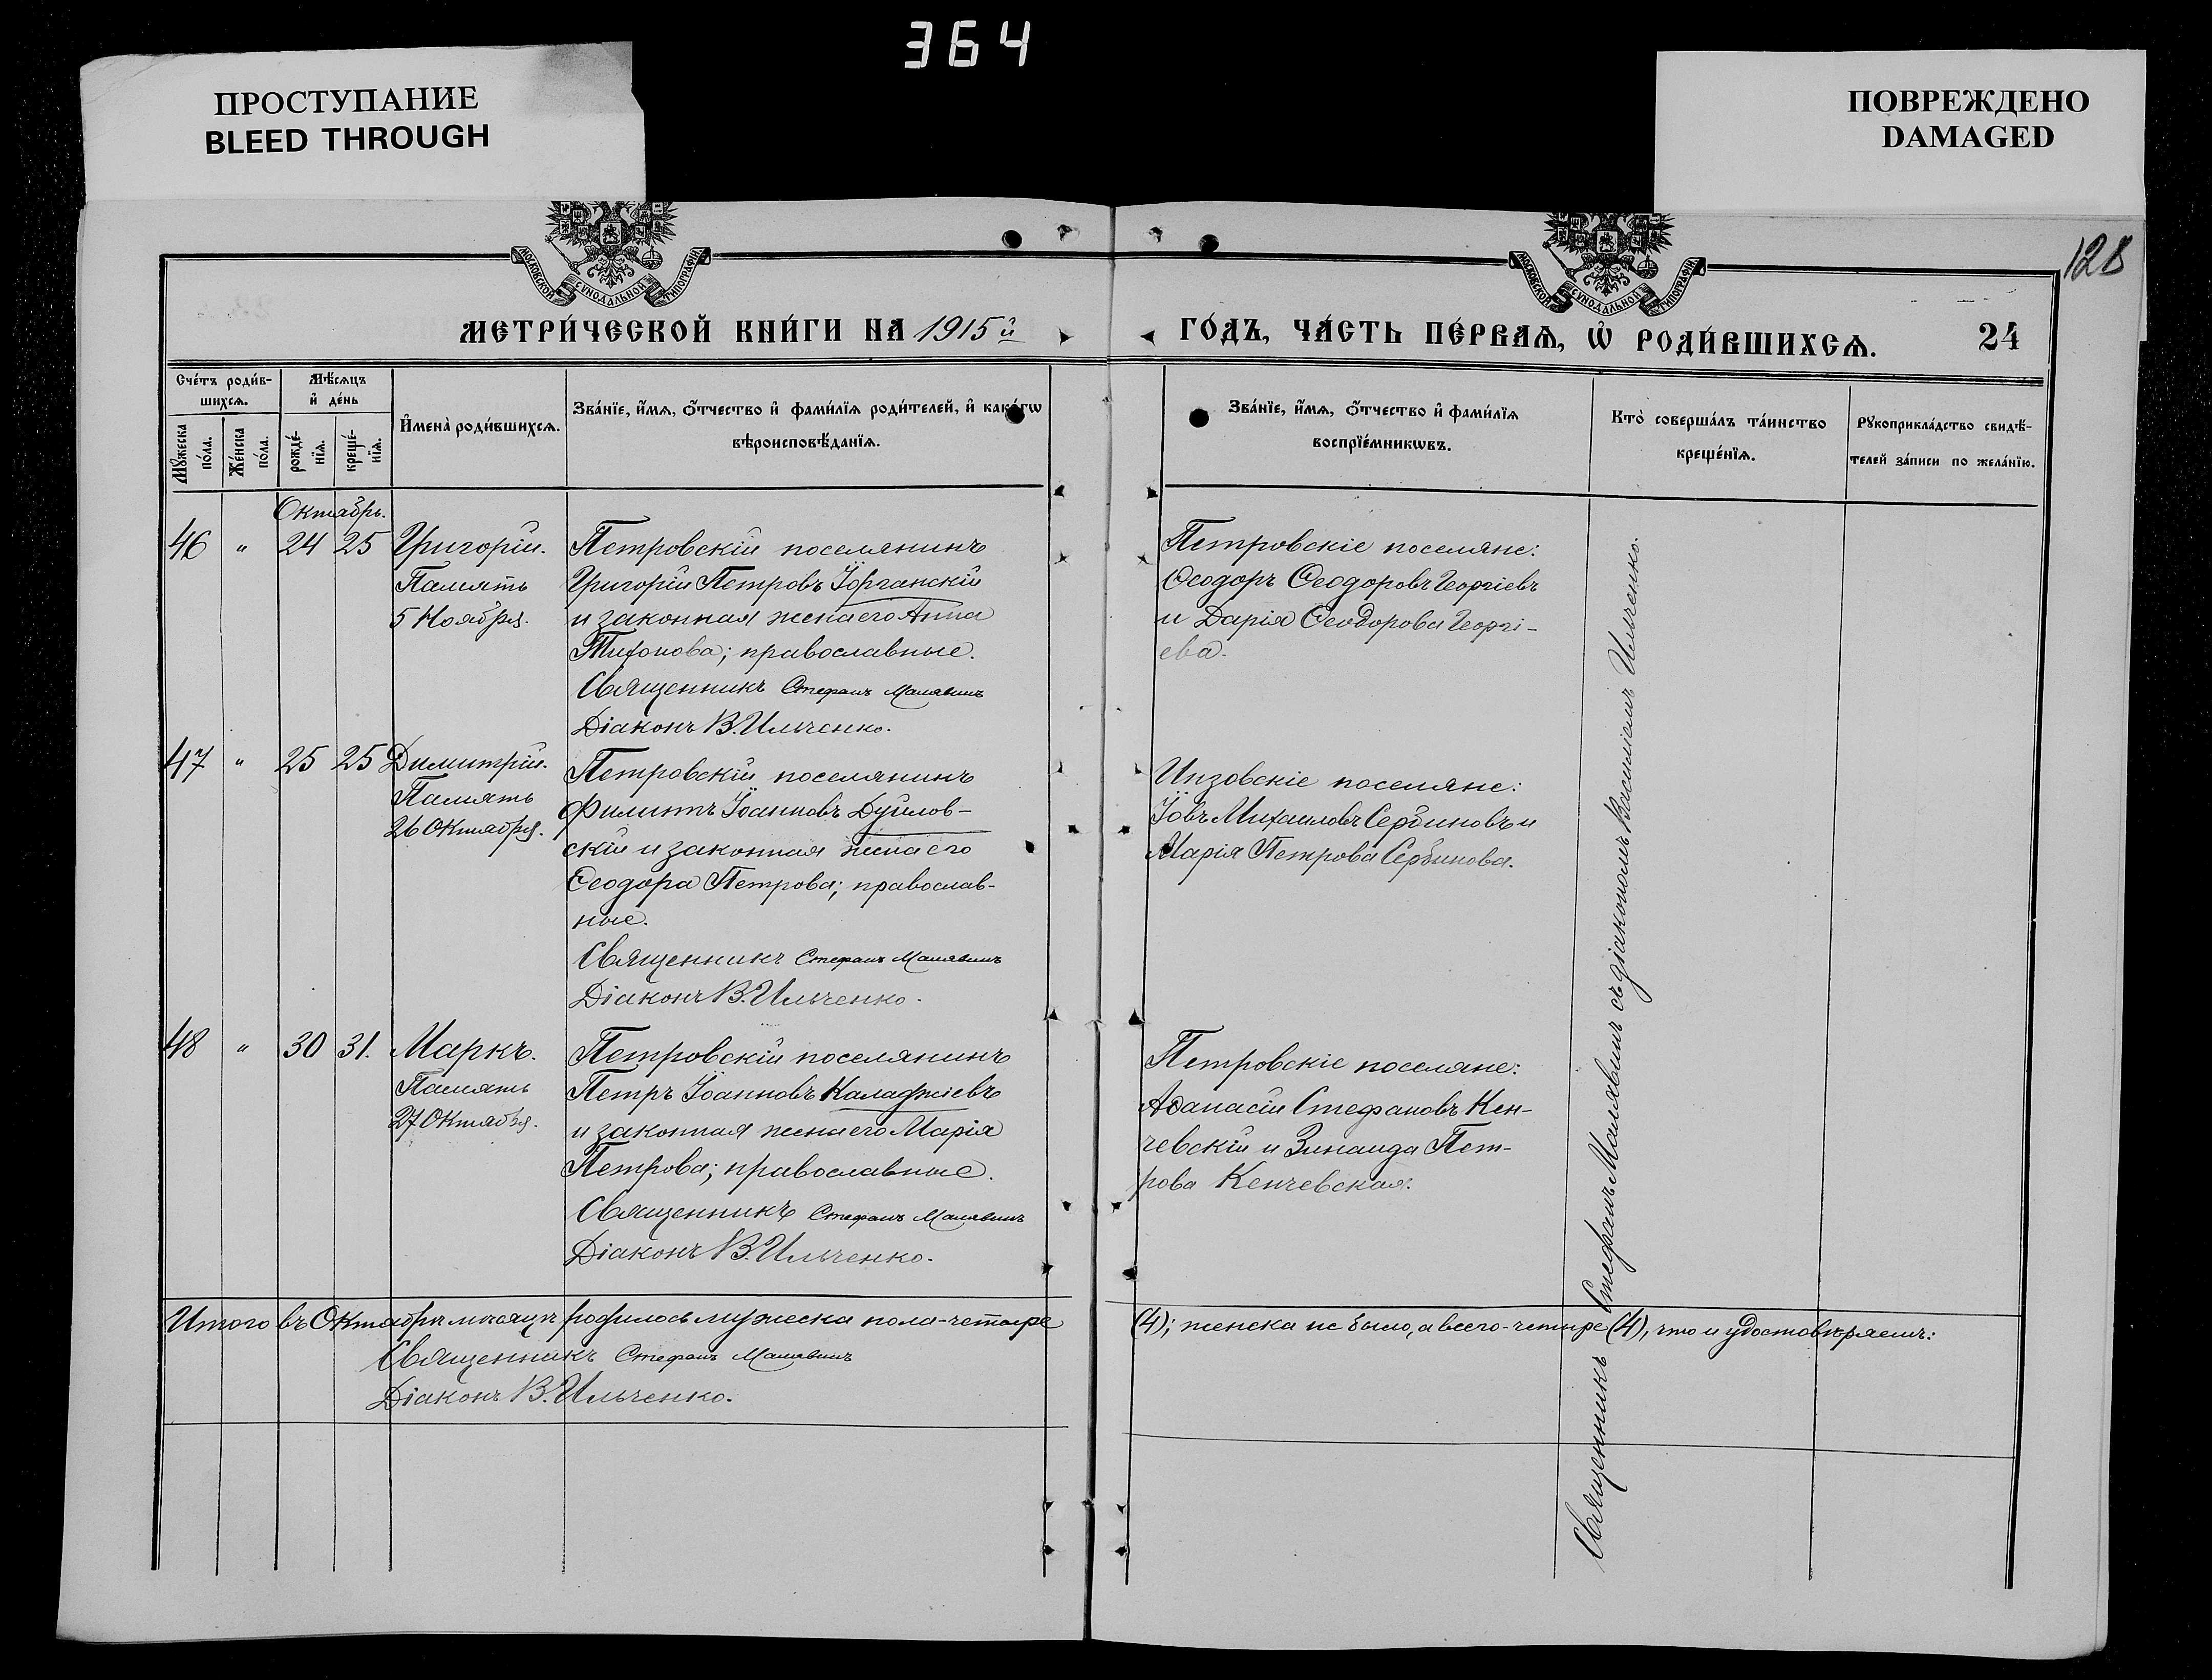 364
ПРОСТУПАНИЕ
BLEED THROUGH
ПОВРЕЖДЕНО
DAMAGED
128
МОСКОВСКОЙ СѴНОДАЛЬНОЙ ТИПОГРАФІИ
МОСКОВСКОЙ СѴНОДАЛЬНОЙ ТИПОГРАФІИ
МЕТРИ́ЧЕСКОЙ КНИ́ГИ НА 1915й
ГО́ДЪ, ЧА́СТЬ ПЕ́РВАѦ, Ѡ҆ РОДИ́ВШИХСѦ. 24
Сче́тъ роди́в-
шихсѧ.
Мѣ́сѧцъ
и҆ де́нь
Мꙋ́жеска по́ла.
Же́нска по́ла.
рожде́-
нїѧ.
креще́-
нїѧ.
И҆мена̀ роди́вшихсѧ.
Зва́нїе, и҆́мѧ, ѻ҆́тчество и҆ фами́лїѧ роди́телей, и҆ како́гѡ
вѣроисповѣ́данїѧ.
Зва́нїе, и҆́мѧ, ѻ҆́тчество и҆ фами́лїѧ
воспрїе́мникѡвъ.
Кто̀ соверша́лъ та́инство
креще́нїѧ.
Рꙋкоприкла́дство свидѣ́-
телей за́писи по жела́нїю.
Октябрь.
46 " 24 25 Григорій.
Память
5 Ноября.
Петровскій поселянинъ
Григорій Петровъ Іорганскій
и законная жена его Анна
Тихонова; православные.
Священникъ Стефанъ Малявинъ
Діаконъ В. Ильченко.
Петровскіе поселяне:
Ѳеодоръ Ѳеодоровъ Георгіевъ
и Дарія Ѳеодорова Георгі-
ева.
47 " 25 25 Димитрій.
Память
26 Октября.
Петровскій поселянинъ
Филиппъ Іоанновъ Дуйлов-
скій и законная жена его
Ѳеодора Петрова; православ-
ные.
Священникъ Стефанъ Малявинъ
Діаконъ В. Ильченко.
Инзовскіе поселяне:
Іовъ Михаиловъ Сербиновъ и
Марія Петрова Сербинова.
48 " 30 31. Маркъ.
Память
27 Октября.
Петровскій поселянинъ
Петръ Іоанновъ Каладжіевъ
и законная жена его Марія
Петрова; православные.
Священникъ Стефанъ Малявинъ
Діаконъ В. Ильченко.
Петровскіе поселяне:
Аѳанасій Стефановъ Кен-
чевскій и Зинаида Пет-
рова Кенчевская.
Священникъ Стефанъ Малявинъ съ діакономъ Василіемъ Ильченко.
Итого въ Октябрѣ мѣсяцѣ родилось мужеска пола-четыре (4); женска не было, а всего-четыре (4), что и удостовѣряемъ:
Священникъ Стефанъ Малявинъ
Діаконъ В. Ильченко.